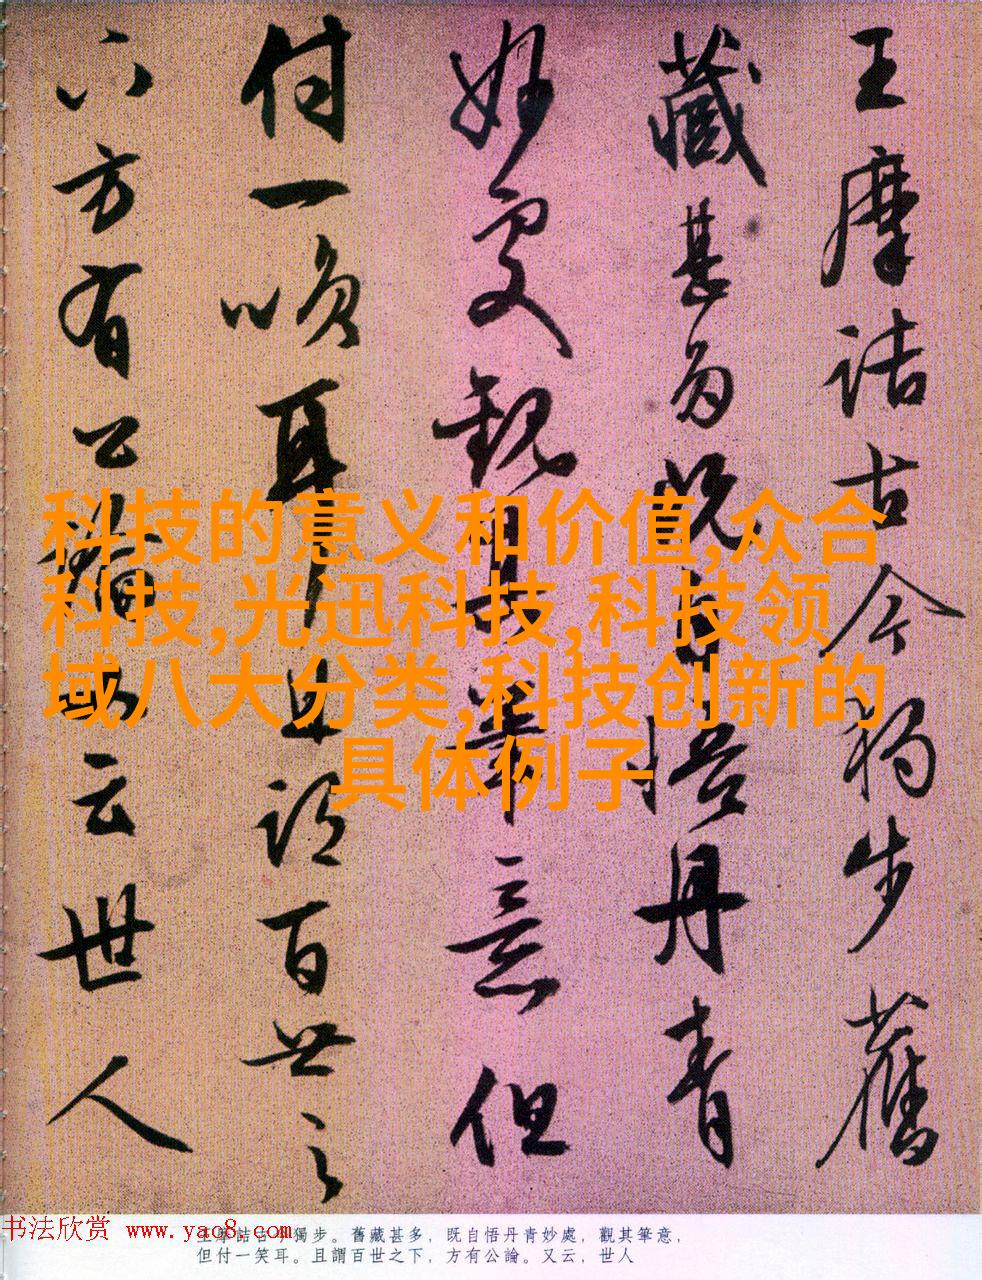 王摩詰古今獨步舊
藏甚多既自悟丹青
妙處觀其筆意但
付一咲耳且謂百世之
下方有公論又云世人
科技的意义和价值,众合
科技,光迅科技,科技领
域八大分类,科技创新的
具体例子
书法欣赏 www.yac8.com
王摩詰古今獨步。舊藏甚多，既自悟丹青妙處，觀其筆意，
但付一笑耳。且謂百世之下，方有公論。又云，世人